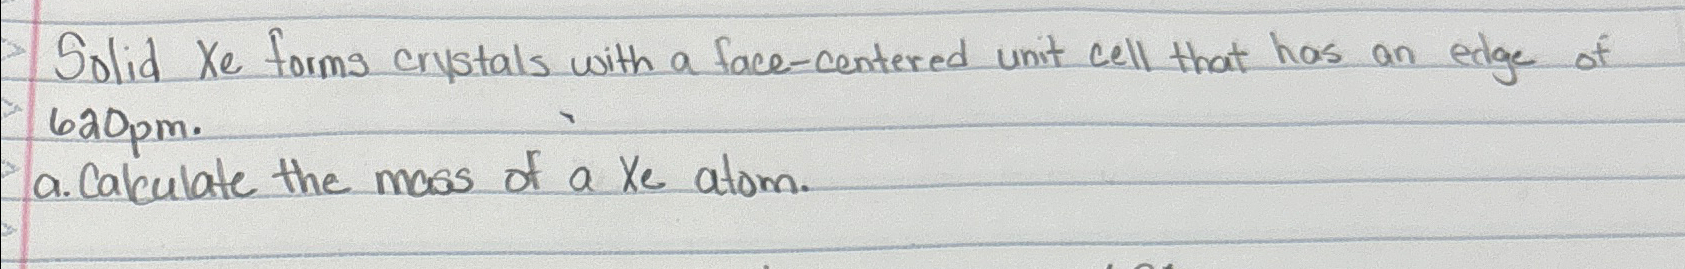 Solid Xe forms crystals with a face-centered unit cell that has an edge of
620pm.
a. Calculate the mass of a Xe atom.